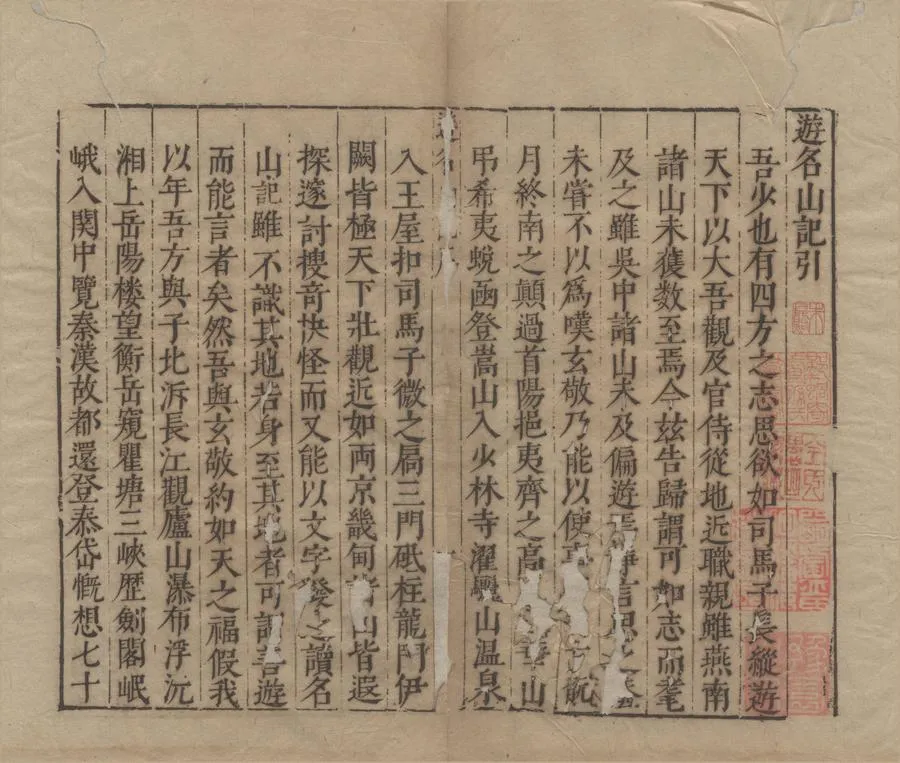 遊名山記引
吾少也有四方之志思欲如司馬子長縱遊
天下以大吾觀及官侍從地近職親雖燕南
諸山未獲数至焉今玆告歸謂可如志而耄
及之雖吳中諸山未及偏遊
未嘗不以爲嘆玄敬乃能以使
月終南之顛過首陽挹夷齊之高山
弔希夷蛻函登嵩山入少林寺濯驪山温泉
入王屋扣司馬子微之扃三門砥柱龍門伊
闕皆極天下壮觀近如両京畿甸山皆遐
探邃討搜竒抉怪而又能以文字發之讀名
山記雖不識其地若身至其地者可謂善遊
而能言者矣然吾與玄敬約如天之福假我
以年吾方與子北泝長江觀廬山瀑布浮沅
湘上岳陽楼望衡岳窺瞿塘三峽歴劎閣岷
峨入関中覽秦漢故都還登泰岱慨想七十